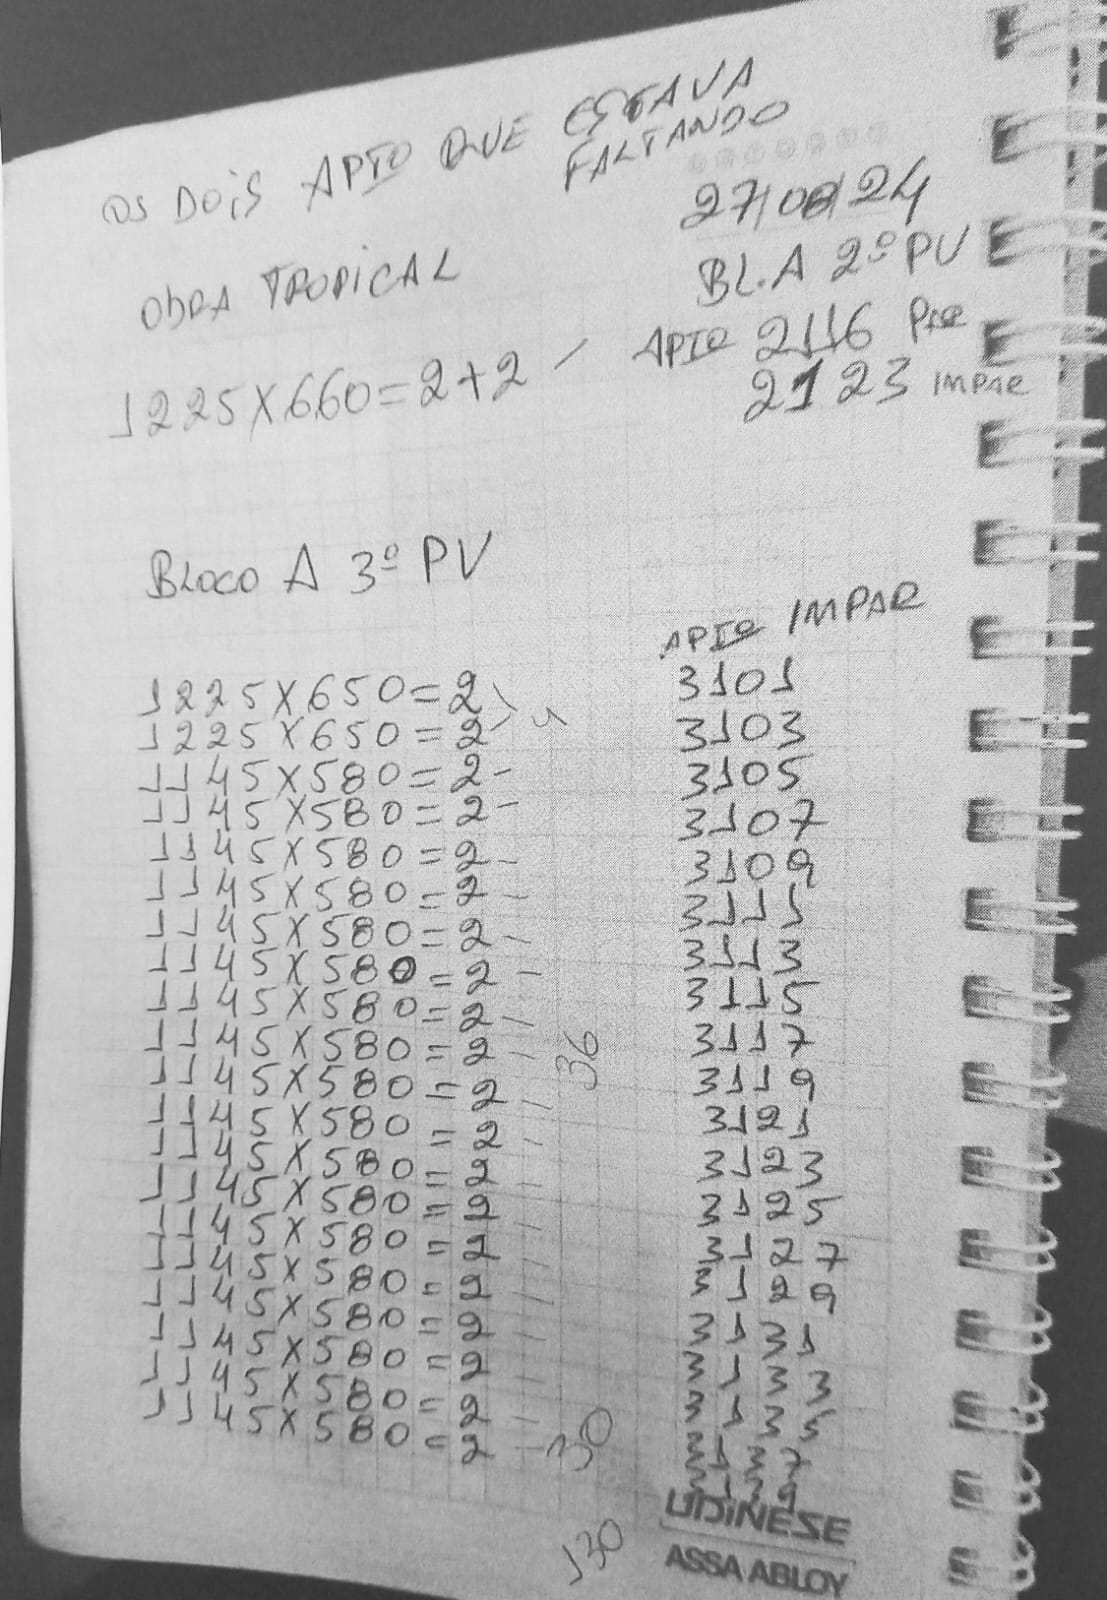 OS DOIS APTO QUE ESTAVA
FALTANDO
27/08/24
OBRA TROPICAL
BL.A 2º PV
1225X660=2+2 / APTO 2116 PAR
2123 IMPAR
BLOCO A 3º PV
APTO IMPAR
1225X650=2 3101
1225X650=2 4 3103
1145X580=2 - 3105
1145X580=2 - 3107
1145X580=2 - 3109
1145X580=2 - 3111
1145X580=2 - 3113
1145X580=2 - 3115
1145X580=2 - 3117
1145X580=2 - 36 3119
1145X580=2 - 3121
1145X580=2 - 3123
1145X580=2 - 3125
1145X580=2 - 3127
1145X580=2 - 3129
1145X580=2 - 3131
1145X580=2 - 3133
1145X580=2 - 3135
1145X580=2 - 3137
1145X580=2 - 30 3139
130
UDINESE
ASSA ABLOY